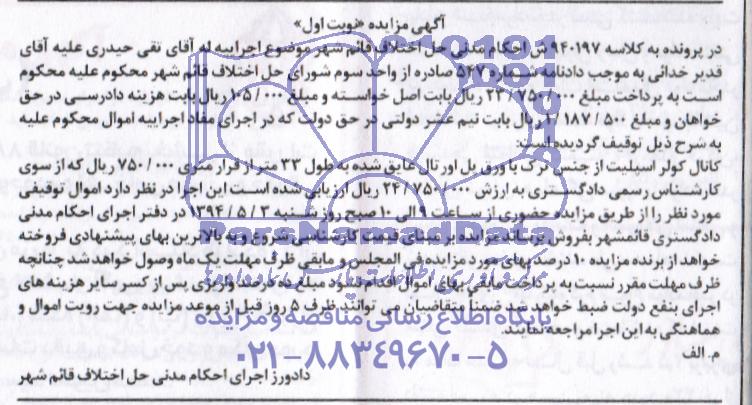 آگهی مزایده «نوبت اول»
در پرونده به کلاسه ۹۴۰۱۹۷ش احکام مدنی حل اختلاف قائم شهر موضوع اجراییه له آقای تقی حیدری علیه آقای
قدیر خدائی به موجب دادنامه شماره ۵۴۷ صادره از واحد سوم شورای حل اختلاف قائم شهر محکوم علیه محکوم
است به پرداخت مبلغ ۲۳/۷۵۰/۰۰۰ ریال بابت اصل خواسته و مبلغ ۱۰۵/۰۰۰ ریال بابت هزینه دادرسی در حق
خواهان و مبلغ ۱/۱۸۷/۵۰۰ ریال بابت نیم عشر دولتی در حق دولت که در اجرای مفاد اجراییه اموال محکوم علیه
به شرح ذیل توقیف گردیده است:
کانال کولر اسپلیت از جنس ترک با ورق پل اورتال عایق شده به طول ۳۳ متر از قرار متری ۷۵۰/۰۰۰ ریال که از سوی
کارشناس رسمی دادگستری به ارزش ۲۴/۷۵۰/۰۰۰ ریال ارزیابی شده است این اجرا در نظر دارد اموال توقیفی
مورد نظر را از طریق مزایده حضوری از ساعت ۹ الی ۱۰ صبح روز شنبه ۱۳۹۴/۵/۳ در دفتر اجرای احکام مدنی
دادگستری قائمشهر بفروش برساند مزایده بر مبنای قیمت کارشناسی شروع و به بالاترین بهای پیشنهادی فروخته
خواهد از برنده مزایده ۱۰ درصد بهای مورد مزایده فی المجلس و مابقی ظرف مهلت یک ماه وصول خواهد شد چنانچه
ظرف مهلت مقرر نسبت به پرداخت مابقی بهای اموال اقدام نشود مبلغ ده درصد واریزی پس از کسر سایر هزینه های
اجرای بنفع دولت ضبط خواهد شد ضمنا متقاضیان می توانند ظرف ۵ روز قبل از موعد مزایده جهت رویت اموال و
هماهنگی به این اجرا مراجعه نمایند.
م. الف
دادورز اجرای احکام مدنی حل اختلاف قائم شهر
ParsNamadData
پایگاه اطلاع رسانی مناقصه و مزایده
۰۲۱-۸۸۳۴۹۶۷۰-۵